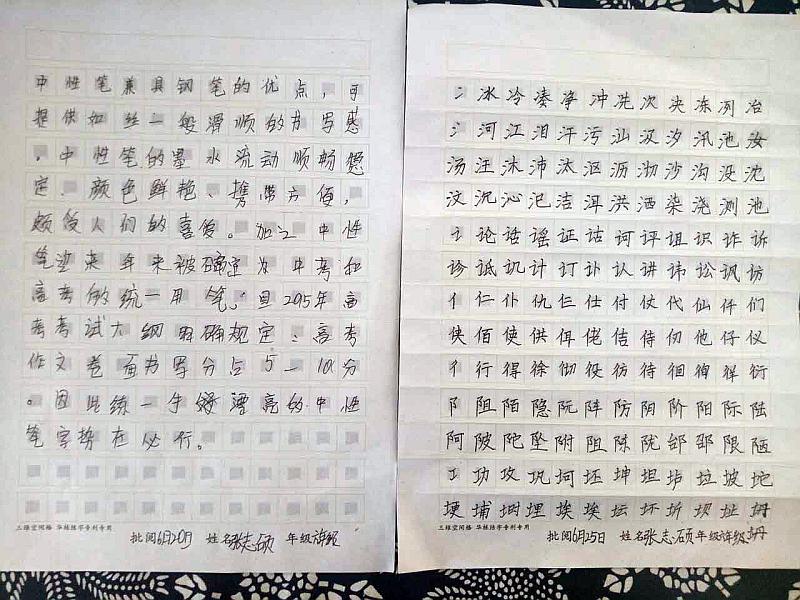 中性笔兼具钢笔的优点，可
提供如丝一般滑顺的书写感
，中性笔的墨水流动顺畅稳
定、颜色鲜艳、携带方便，
颇受人们的喜爱。加之中性
笔近来年来被确定为中考和
高考的统一用笔，且2015年高
考考试大纲明确规定：高考
作文卷面书写分占5—10分
。因此练一手好漂亮的中性
笔字势在必行。
三维空间格 华栋练字专利专用
批阅6月20日 姓名张志硕 年级
冫冰冷凑净冲冼次决冻冽冶
氵河江泪汗污汕汉汐汛池汝
汤汪沐沛汰沤沥沏沙沟没沈
汶沉沁汜洁洱洪洒染浇测池
讠论话谣证诂诃评诅识诈诉
诊诋讥计订讣认讲讳讼讽访
亻仁仆仇仨仕付仗代仙仟们
侠佰使供佴佬佶侍仞他仔仪
彳行得徐彻役彷待徊徘徉衍
阝阻陌隐阮阵防阴阶阳际陆
阿陂陀坠附阻陈陇邰邵限陋
功攻巩坷坯坤坦垆垃坡坨
埂埔埋埃埃坛坏圻坝址坍
三维空间格 华栋练字专利专用
批阅6月25日 姓名张志硕 年级 坍